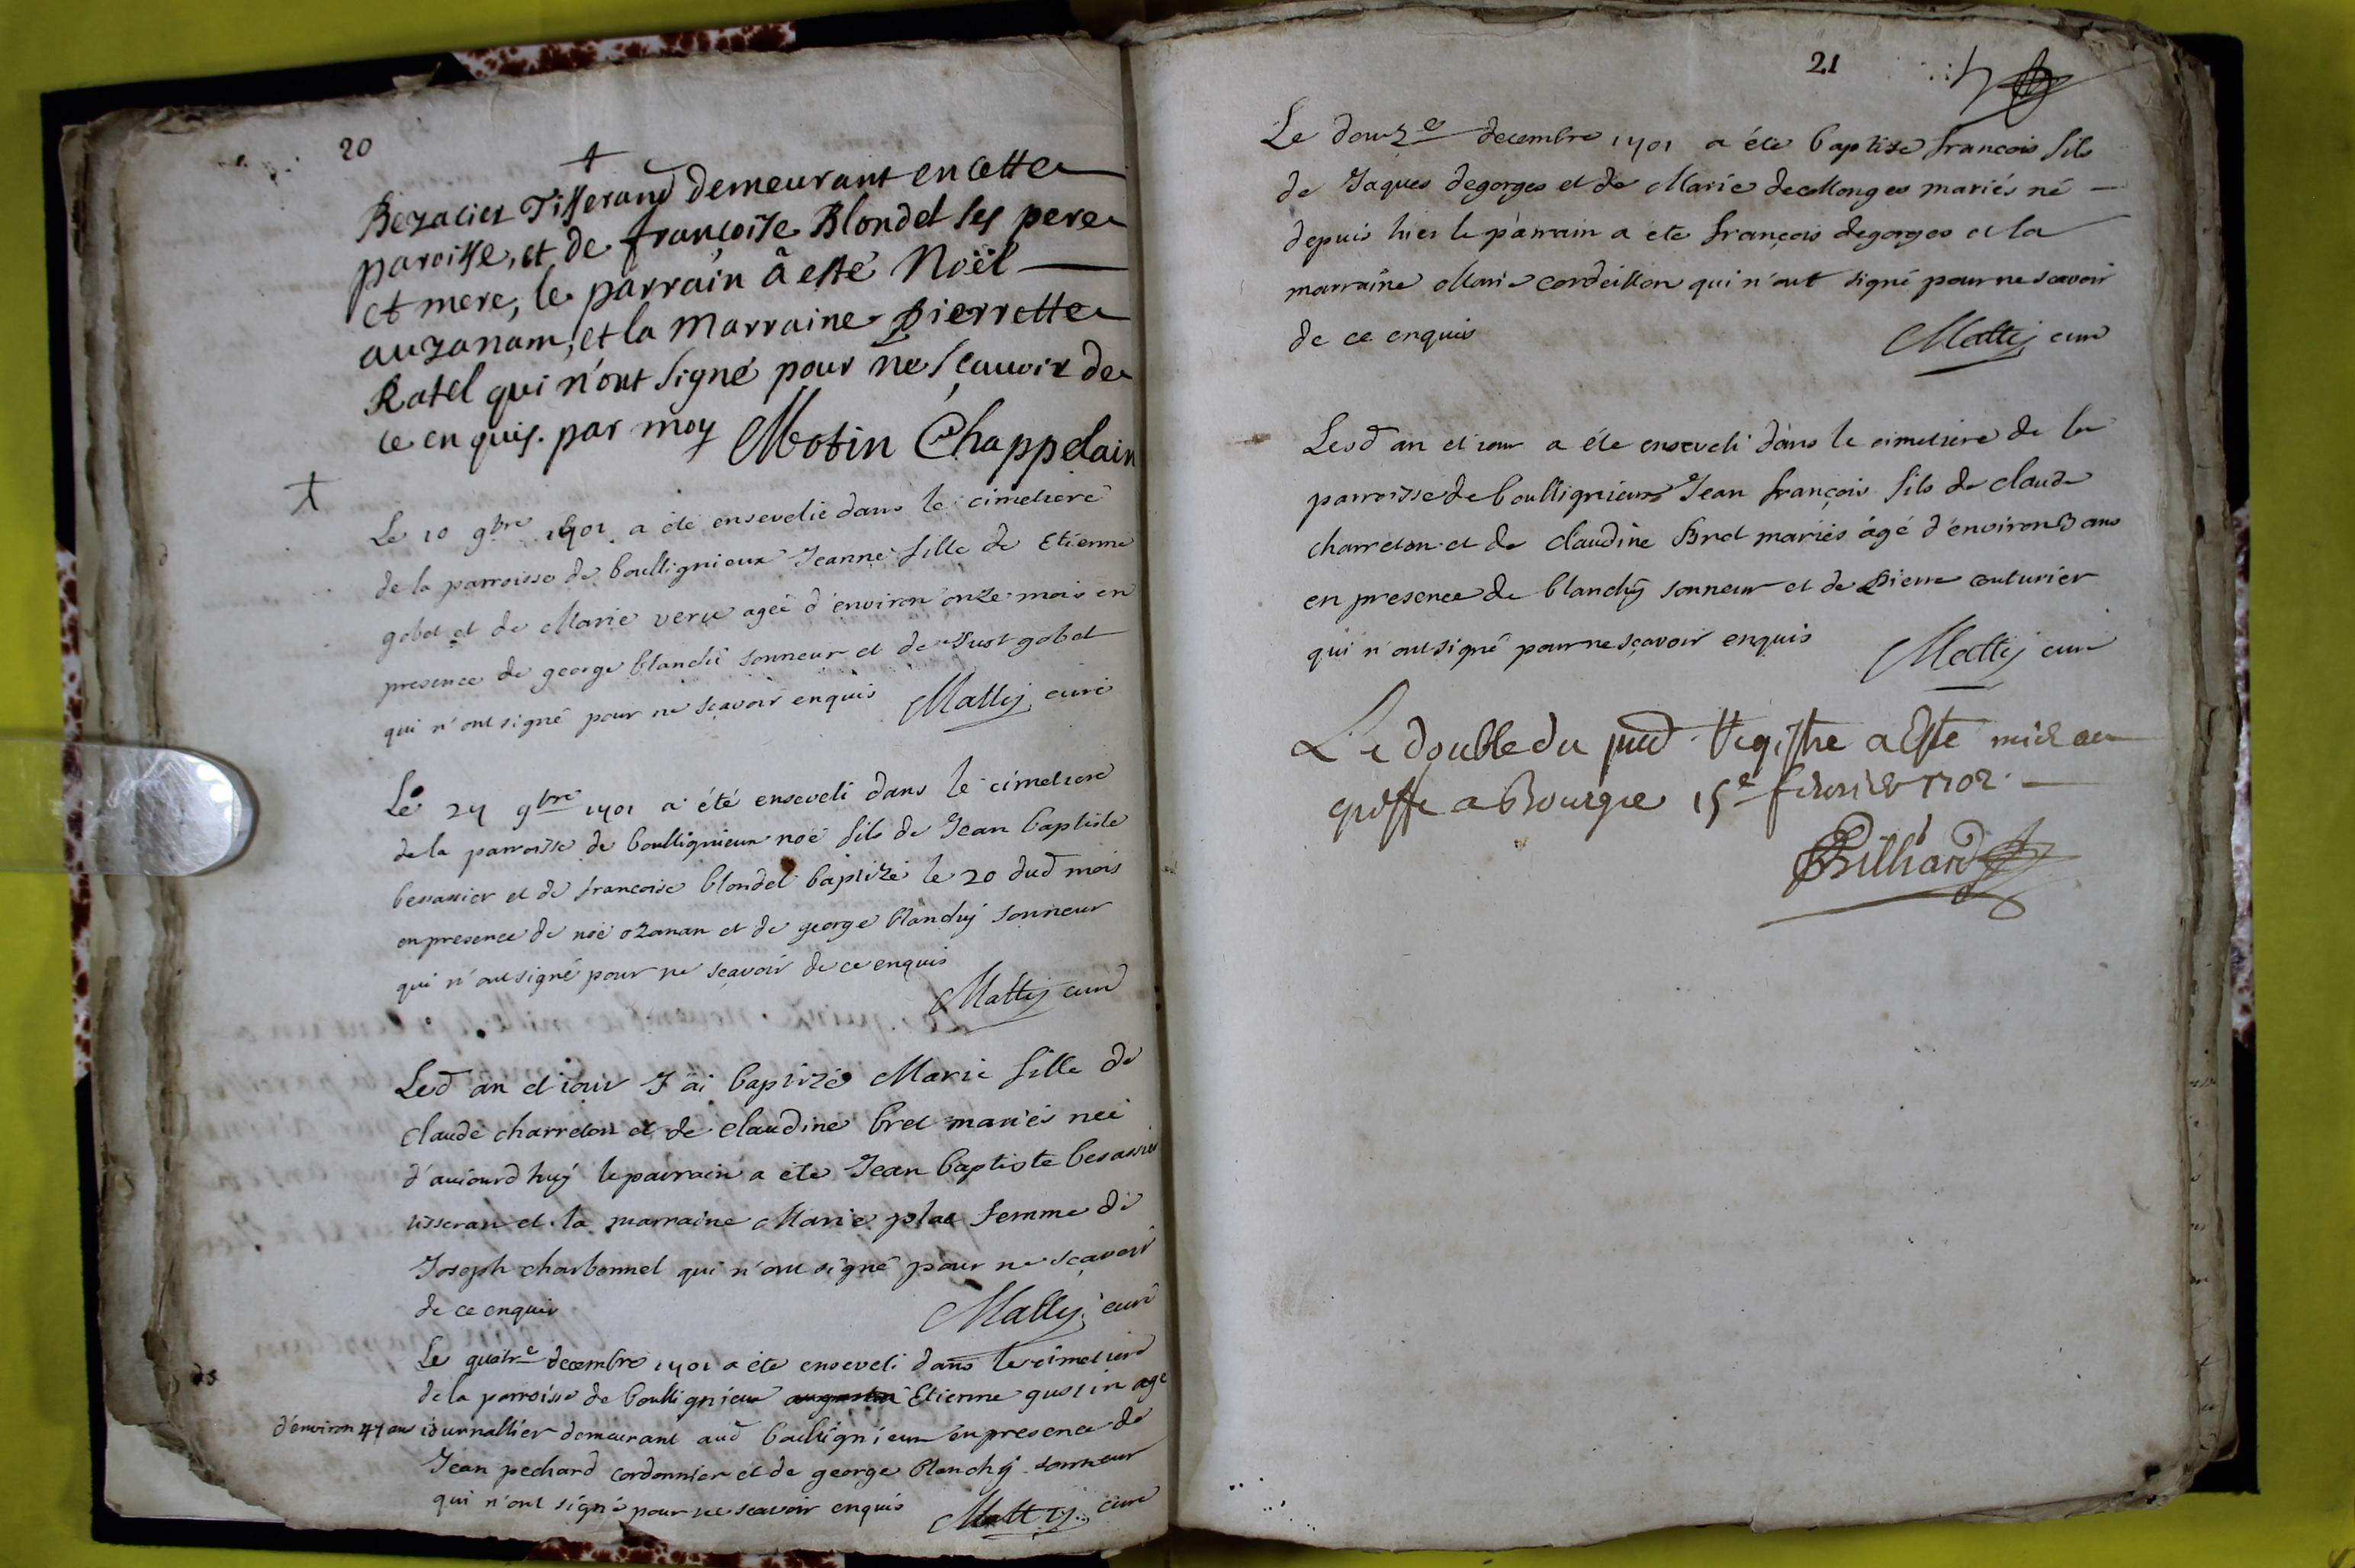 20
Bezacier Tisserand demeurant en cette
paroisse, et de françoise Blondel ses pere
et mere, le parrain â esté Noël
auzanam, et la Marraine pierrette
Ratel qui n'ont signé pour ne sçauoir de
ce enquis. par moy Motin Chappelain
Le 10 9bre 1701 a été ensevelie dans le cimetiere
de la parroisse de boullignieux Jeanne fille de Etienne
gobet et de Marie agee d'environ onze mois en
presence de george blanchi sonneur et de Just gobet
qui n'ont signé pour ne sçavoir enquis Mattij curé
Le 24 9bre 1701 a été enseveli dans le cimetiere
de la parroisse de boullignieux noe fils de Jean baptiste
bessassier et de francoise blondel baptizé le 20 dud mois
en presence de noe ozanan et de george blanchij sonneur
qui n'ont signé pour ne sçavoir de ce enquis
Mattij curé
Led an et iour J'ai baptizé Marie fille de
claude charreton et de claudine bret mariés neé
d'auiourdhuy le parrain a ete Jean baptiste besassier
tisseran et la marraine Marie plat femme de
Joseph charbonnel qui n'ont signé pour ne sçavoir
de ce enquis Mattij curé
Le quatre decembre 1701 a été enseveli dans le cimetiere
de la parroisse de boullignieux Etienne gustin agé
d'environ 47 ans iournallier demeurant aud boullignieux en presence de
Jean pechard cordonnier et de george blanchij sonneur
qui n'ont signé pour ne scavoir enquis Mattij curé
21
Le douze decembre 1701 a été baptise francois fils
de Jaques degorges et de Marie decollonges mariés né
depuis hier le parrain a été françois degorges et la
marraine Marie cordeillon qui n'ont signé pour ne scavoir
de ce enquis Mattij curé
Lesd an et iour a été enseveli dans le cimetiere de la
parroisse de boullignieux Jean françois fils de claude
charreton et de claudine bret mariés âgé d'environ 3 ans
en presence de blanchij sonneur et de Pierre couturier
qui n'ont signé pour ne sçavoir enquis Mattij curé
Le double du pnt Registre a Esté mis au
greffe a Bourg le 15e feburier 1702
Bilhard